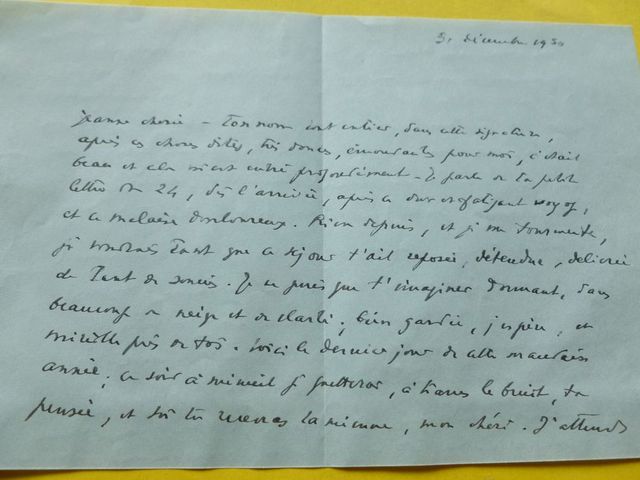 31 Décembre 1934
jeanne chérie – Ton nom tout entier, dans cette signature,
après ces choses dites, très douces, émouvantes pour moi, c'était
beau et cela m'est entré profondément – Je parle de ta petite
lettre du 24, dès l'arrivée, après ce dur et fatigant voyage,
et ce malaise douloureux. Rien depuis, et je me tourmente,
je voudrais tant que ce séjour t'ait reposée, détendue, délivrée
de tant de soucis. Je ne puis que t'imaginer dormant, dans
beaucoup de neige et de clarté, bien gardée, j'espère, et
mireille près de toi. Voici le dernier jour de cette mauvaise
année ; ce soir à minuit je guetterai, à travers le bruit, ta
pensée, et toi tu recevras la mienne, mon chéri. J'attends